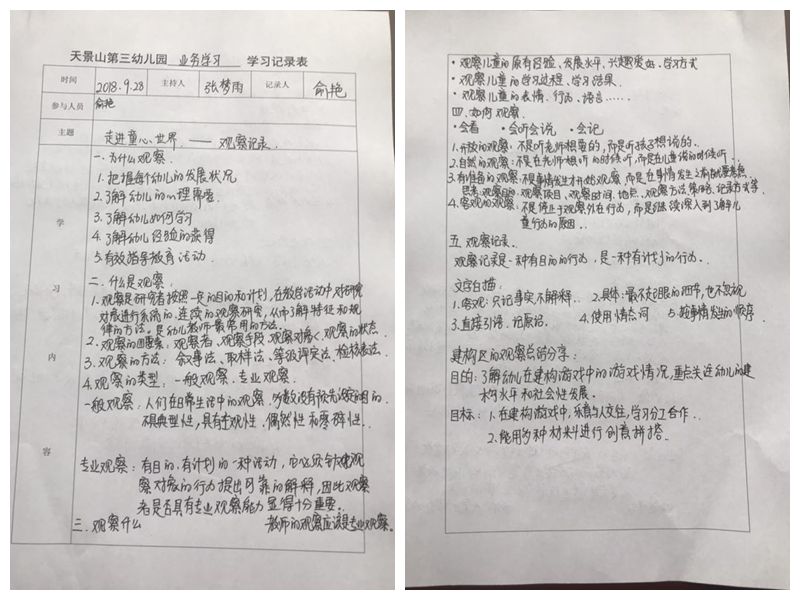 天景山第三幼儿园 业务学习 学习记录表
时间 2018.9.28 主持人 张梦雨 记录人 俞艳
参与人员 俞艳
主题 走进童心世界 —— 观察记录.
学习内容
一.为什么观察.
1.把握每个幼儿的发展状况
2.了解幼儿的心理需要.
3.了解幼儿如何学习
4.了解幼儿经验的获得
5.有效指导教育活动.
二.什么是观察.
1.观察是研究者按照一定的目的和计划,在教学活动中,对研究
对象进行系统的、连续的观察研究,从中了解特征和规
律的方法。是幼儿教师最常用的方法.
2.观察的四要素:观察者、观察手段、观察对象、观察的状态.
3.观察的方法:叙事法、取样法、等级评定法、检核表法.
4.观察的类型:一般观察.专业观察.
一般观察:人们在日常生活中的观察.多数没有预先设定的目的.
不具典型性,具有主观性、偶然性和零碎性.
专业观察:有目的.有计划的一种活动,它必须
察对象的行为提出可靠的解释,因此观察
者是否具有专业观察能力显得十分重要.
三.观察什么 教师的观察应该是专业观察。
·观察儿童的原有经验、发展水平、兴趣爱好、学习方式
·观察儿童的学习过程、学习结果.
·观察儿童的表情、行为、语言……
四.如何观察.
·会看 ·会听会说 ·会记
1.开放的观察:不是听老师想要的,而是听孩子想说的.
2.自然的观察:不是在老师想听的时候听,而是在儿童做的时候听.
3.有准备的观察:不是事情发生才开始观察,而是在事情发生之前就要
思考观察目的、观察项目、观察时间、地点、观察方法、记录方式等
4.客观的观察:不是停止于观察外在行为,而是继续深入到了解儿
童行为的原因.
五.观察记录.
观察记录是一种有目的的行为,是一种有计划的行为.
文字白描:
1.客观:只记事实,不解释. 2.具体:最不起眼的细节,也不忽视
3.直接引语、记原话. 4.使用情态词 5.按事情发生的顺序.
建构区的观察总结分享:
目的:了解幼儿在建构游戏中的游戏情况,重点关注幼儿的建
构水平和社会性发展.
目标:1.在建构游戏中,乐意与人交往,学习分工合作.
2.能用多种材料进行创意拼搭.